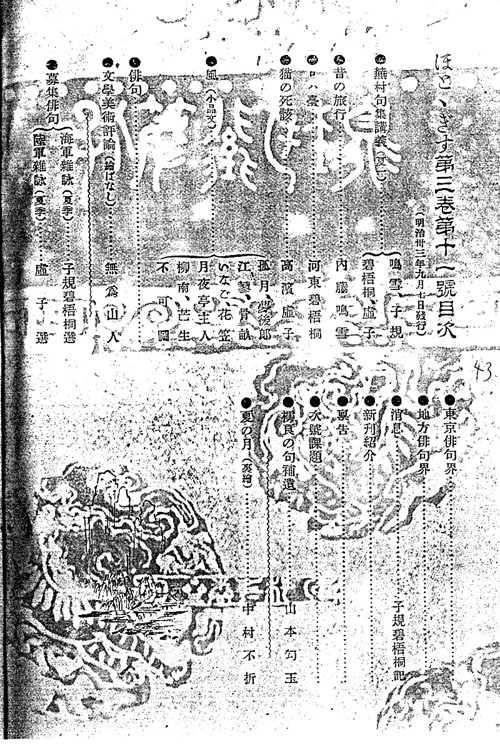 ほとゝぎす第三卷第十一號目次
(明治卅三年九月七日發行)
蕪村句集講義
鳴雪 子規
碧梧桐 虛子
昔の旅行
內藤鳴雪
河東碧梧桐
猫の死骸
高濱虛子
風(小品文)
孤月
いなご、花笠
月夜亭主人
柳南、芒生
不可國
俳句
文學美術評論
無爲山人
募集俳句
海軍雜詠(夏季)
子規碧梧桐選
陸軍雜詠(夏季)
虛子選
東京俳句界
地方俳句界
消息
子規碧梧桐記
新刊紹介
裏告
次號課題
句補遺
山本勾玉
夏の月
中村不折
43.